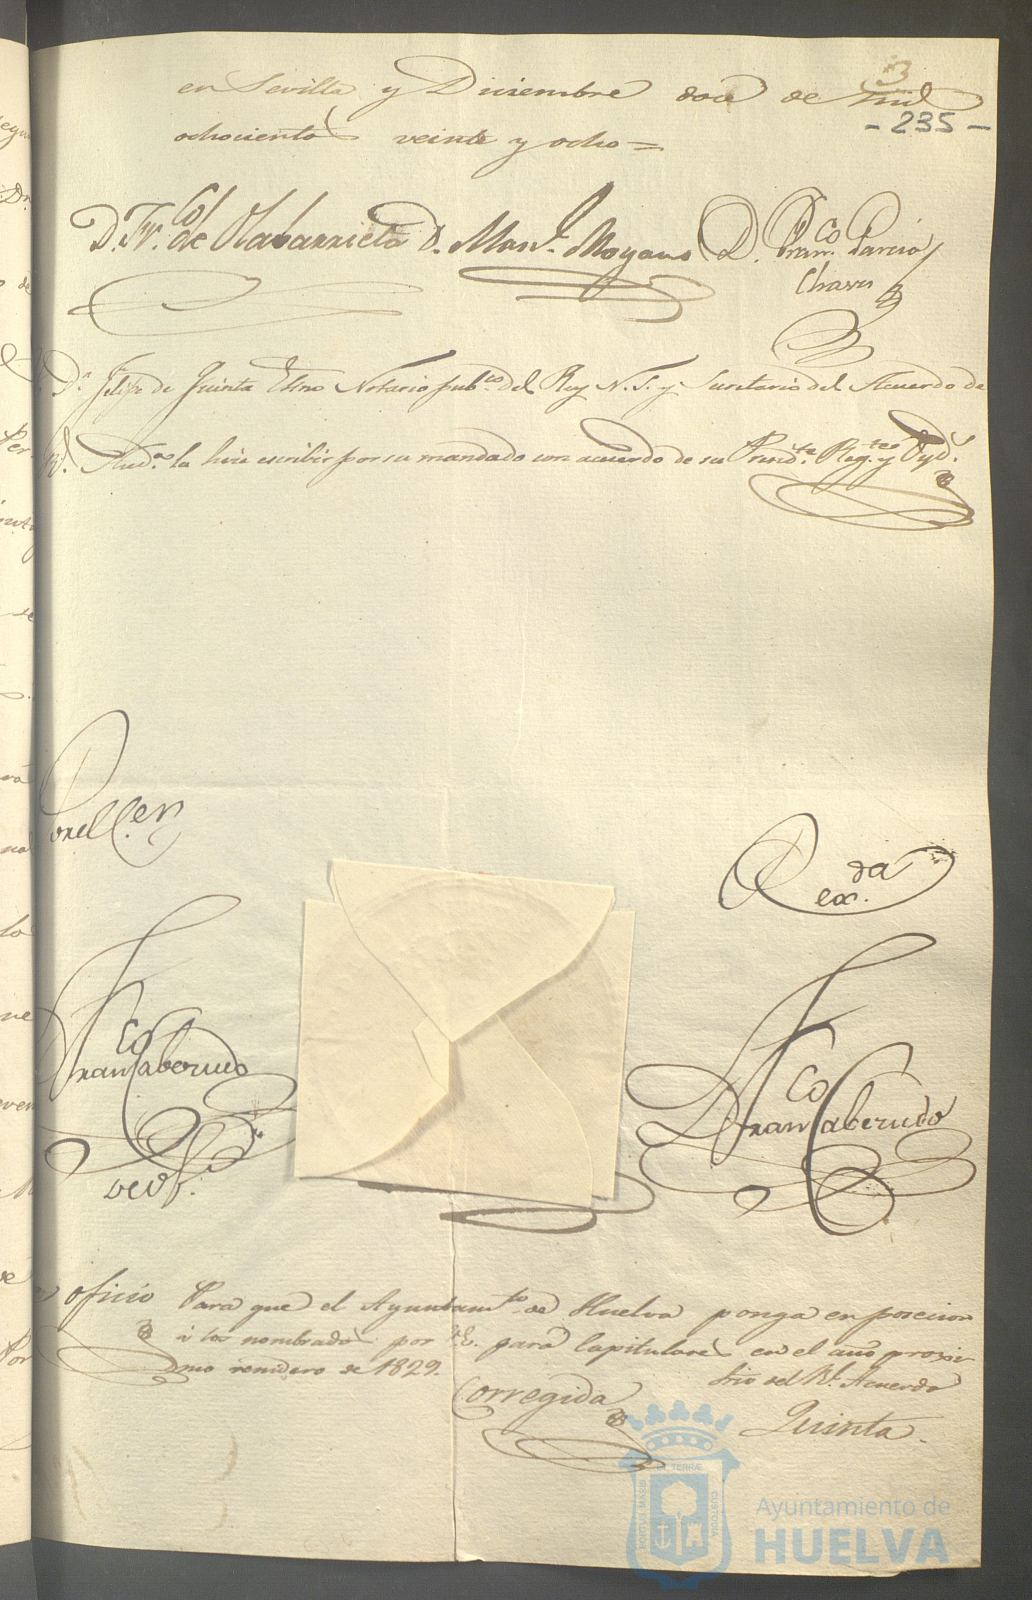 3
en Sevilla y Diciembre doce de mil
- 235 -
ochocientos veinte y ocho =
D. Fr.co de Olabarrieta D. Man.l Moyano D. Fran.co Garcia
Chaves
D.n Felipe de Quinta Esno Notario pub.co del Rey N. S. y Secretario del Acuerdo de
R.l Aud.a la hice escribir por su mandado con acuerdo de su Presid.te Reg.te y Oyd.s
Por el Cer
Rex.da
Fran.co Caberudo
Fran.co Caberudo
oficio Para que el Ayuntam.to de Huelva ponga en posecion
á los nombrados por V.E. para Capitulares en el año proxi-
mo venidero de 1829.
Srio del Rl. Acuerdo
Corregida
Quinta
PORTUS MARIS
ET TERRÆ
CUSTODIA
Ayuntamiento de
HUELVA